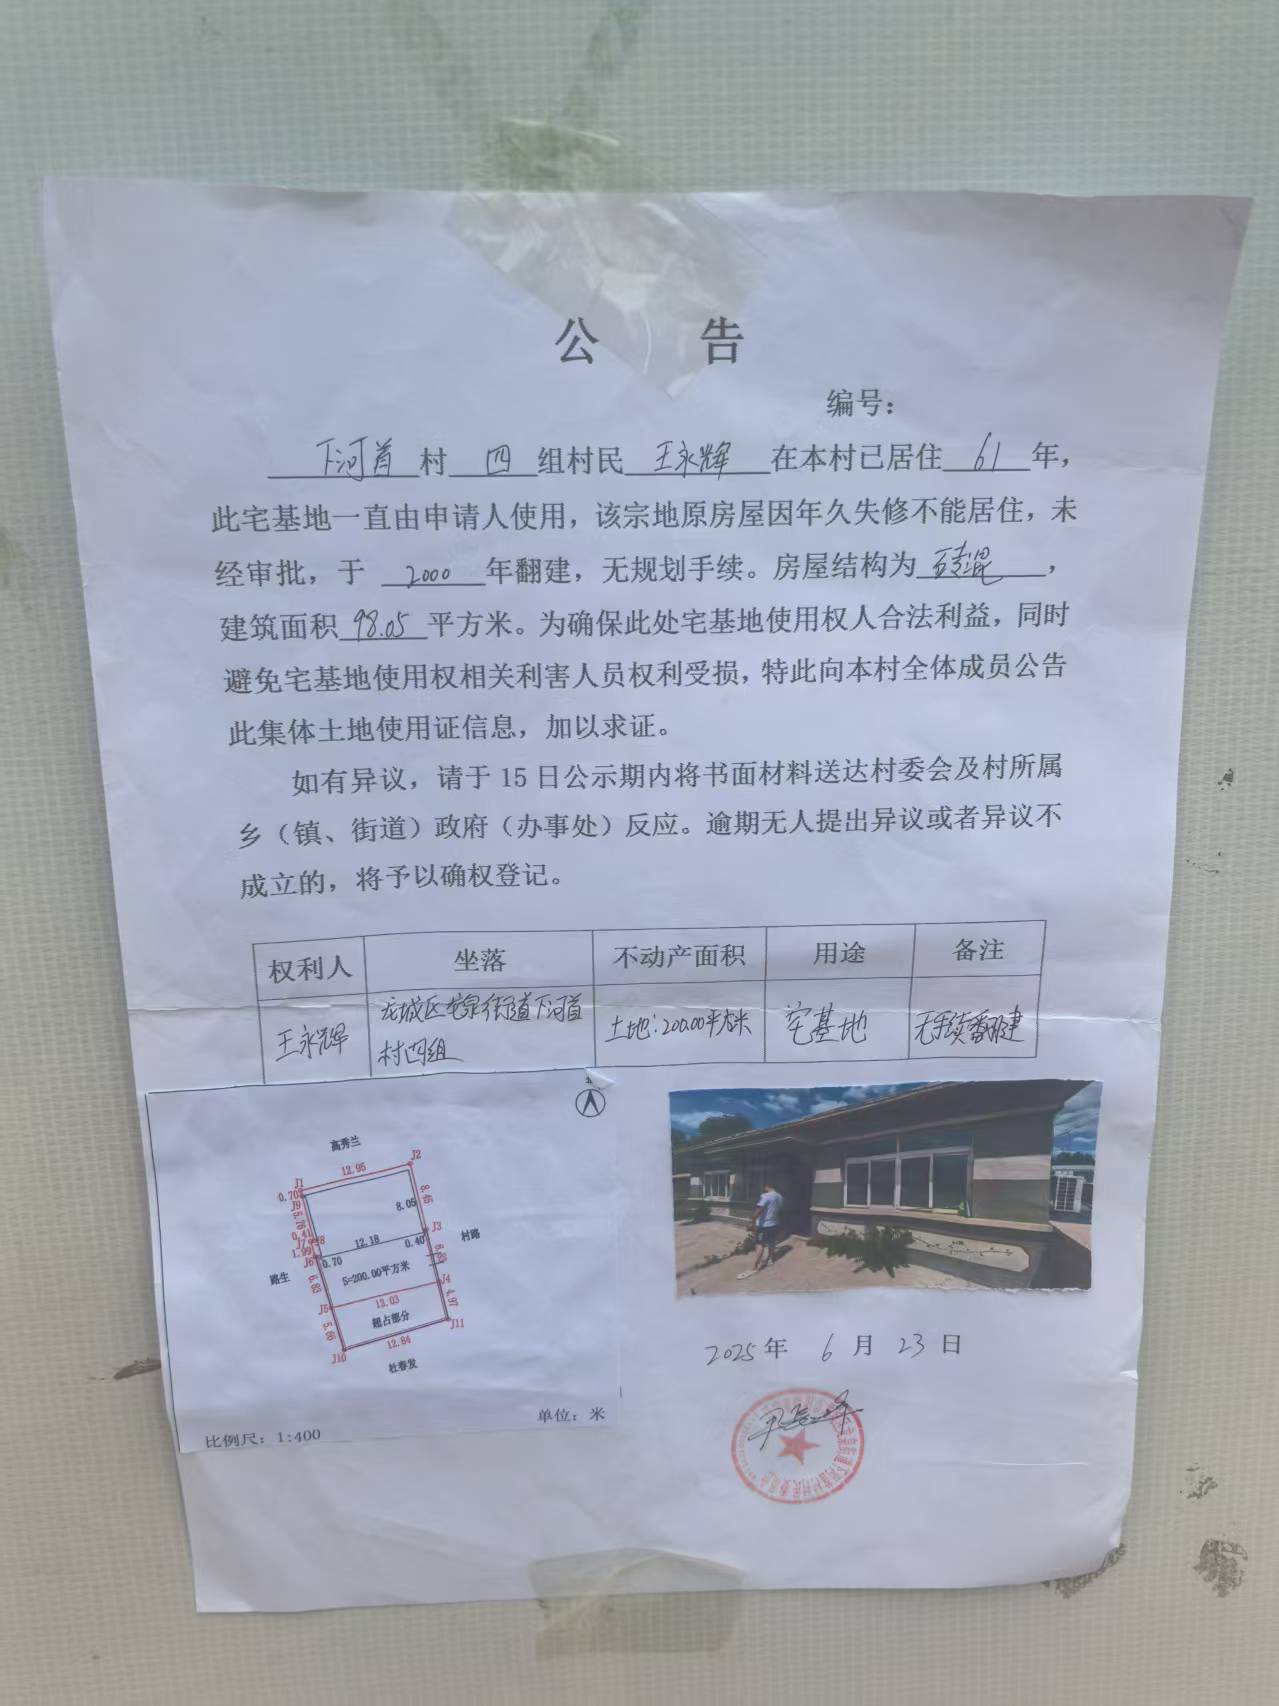 公 告
编号：
下河首村 四 组村民 王永辉 在本村已居住 61 年，
此宅基地一直由申请人使用，该宗地原房屋因年久失修不能居住，未
经审批，于 2000 年翻建，无规划手续。房屋结构为 砖混 ，
建筑面积 98.05 平方米。为确保此处宅基地使用权人合法利益，同时
避免宅基地使用权相关利害人员权利受损，特此向本村全体成员公告
此集体土地使用证信息，加以求证。
如有异议，请于 15 日公示期内将书面材料送达村委会及村所属
乡（镇、街道）政府（办事处）反应。逾期无人提出异议或者异议不
成立的，将予以确权登记。
权利人 坐落 不动产面积 用途 备注
王永辉 龙城区龙泉街道下河首 土地：200.00平方米 宅基地 无手续翻建
村四组
北
高秀兰
J1 12.95 J2
0.70
J9
5.76
8.05 8.45
0.41
J7
12.18 0.40 J3
1.99
J6 0.70
村路
路生
S=200.00平方米
6.83
J4
J5 13.03
4.97
超占部分
J11
J10 12.84
杜春发
单位：米
比例尺：1:400
2025年 6 月 23 日